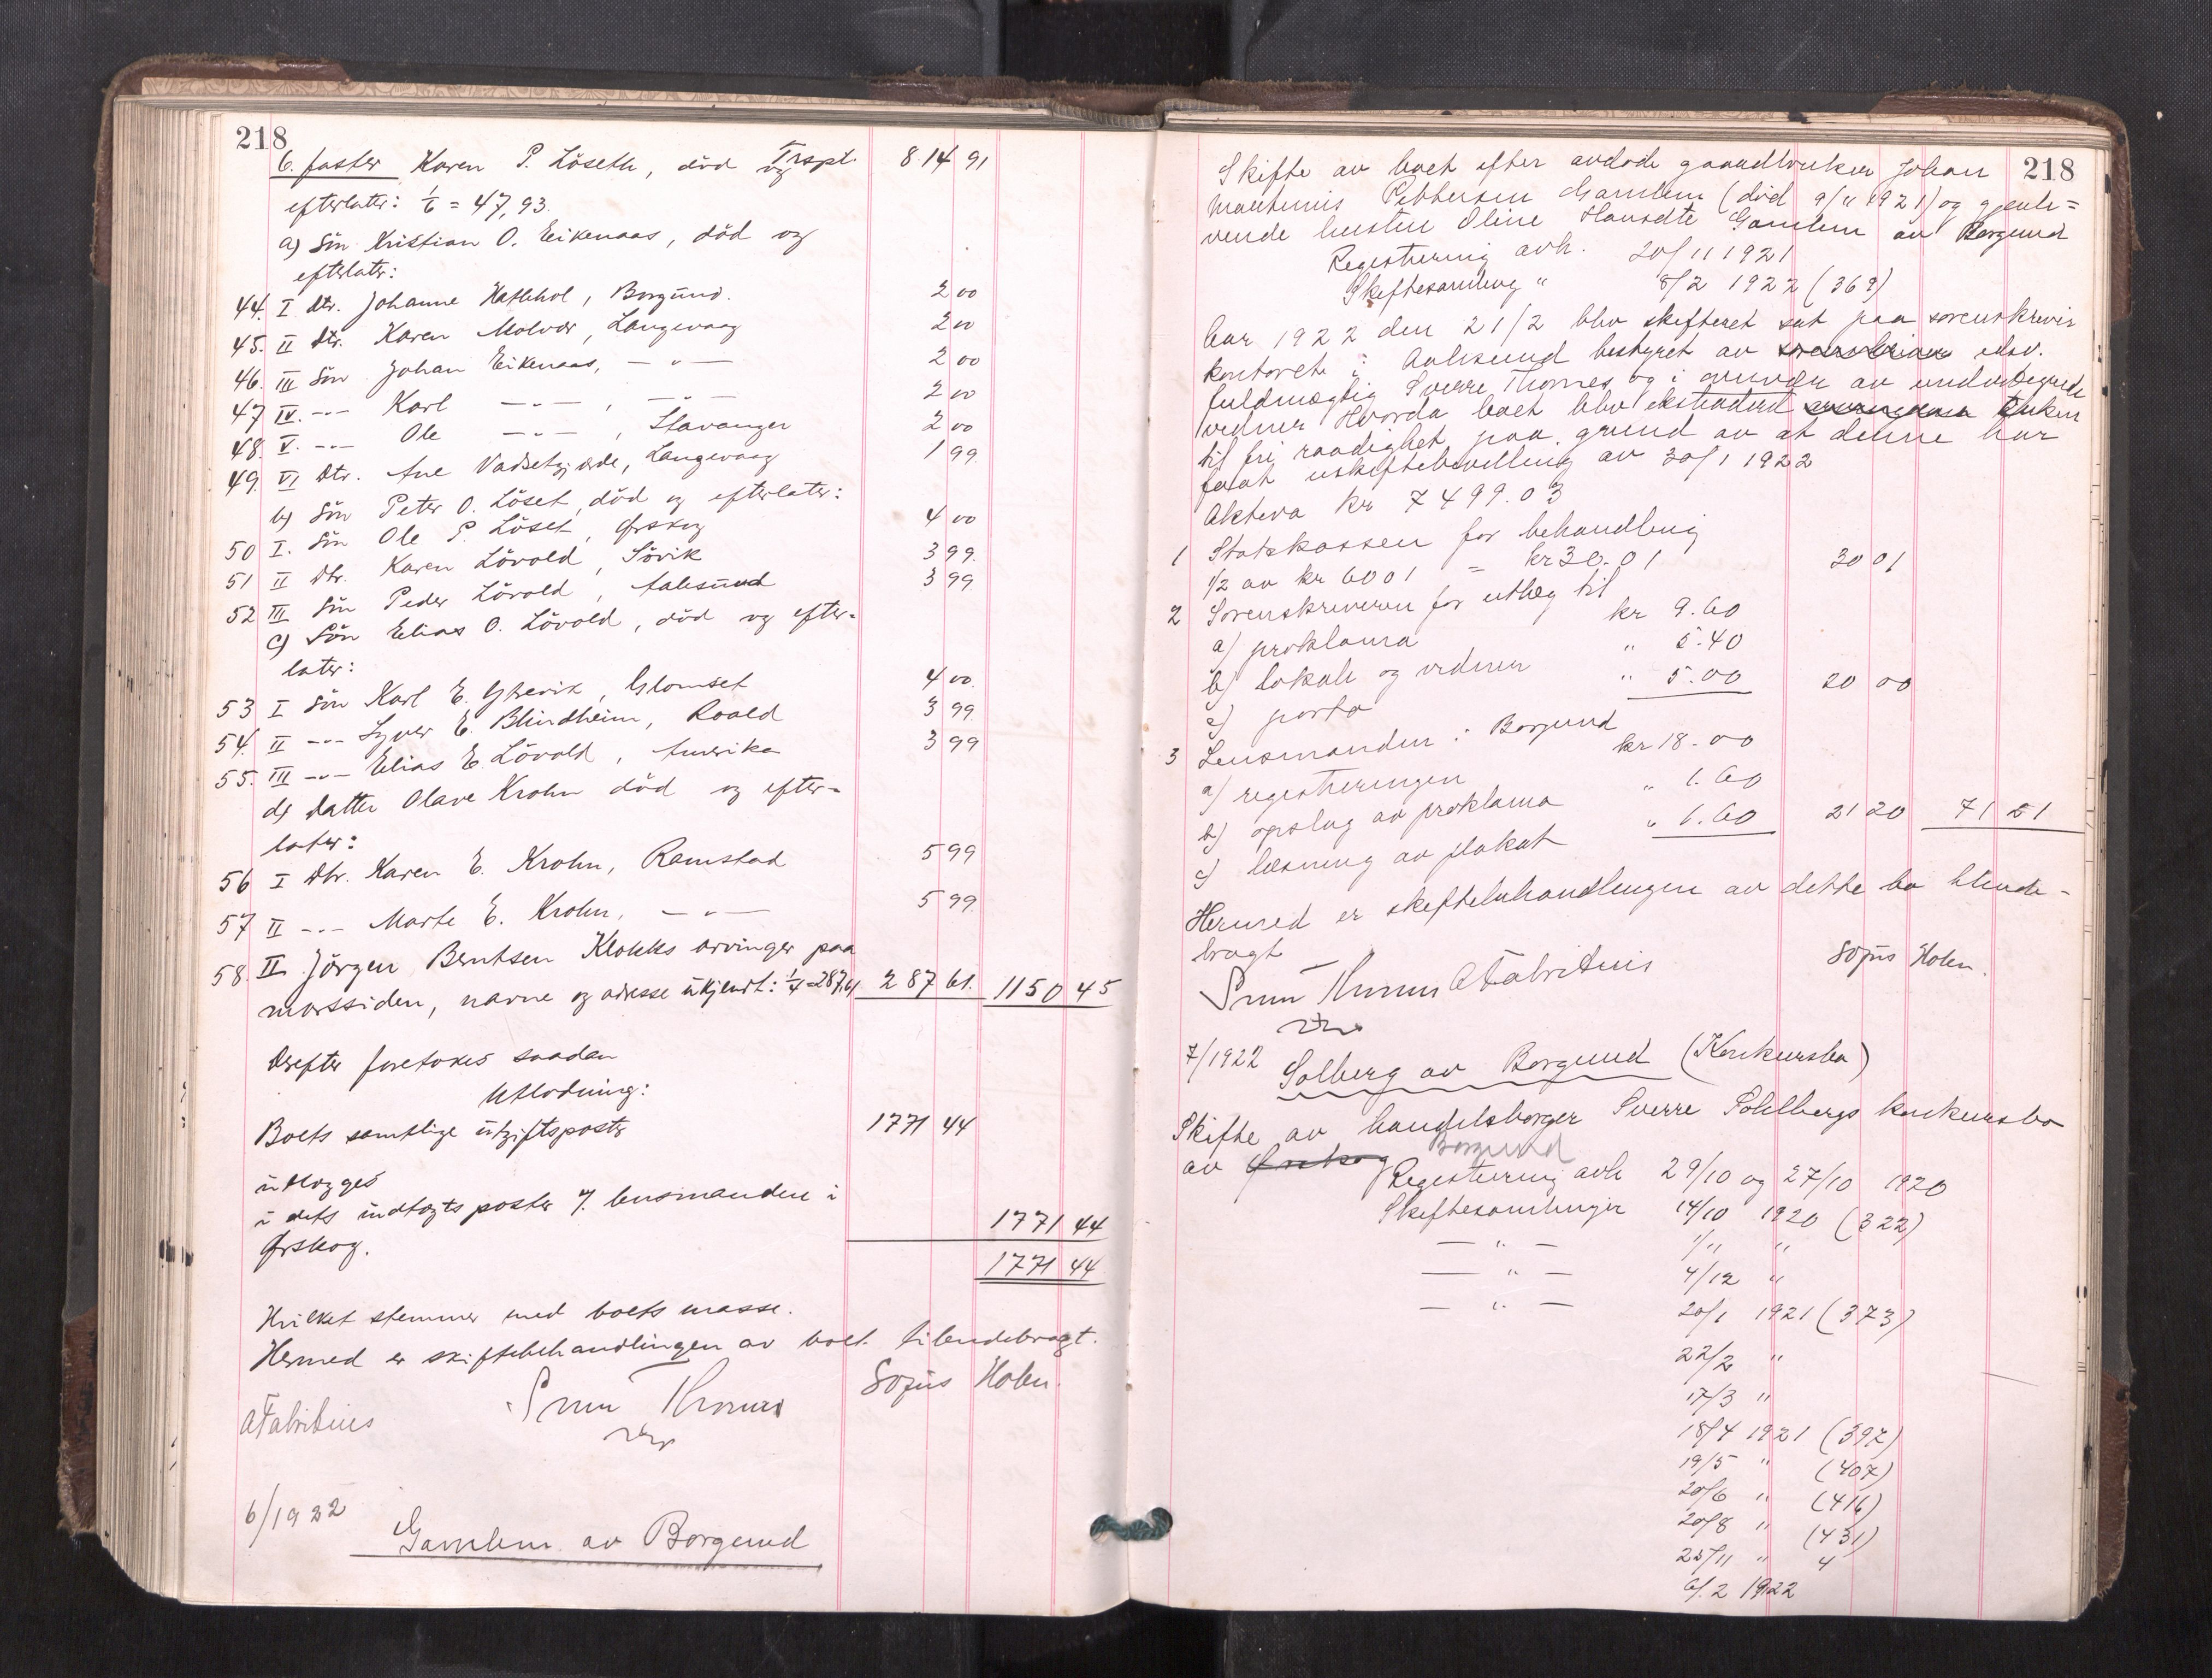 218
6. faster Karen P. Löseth, död og Trspt. 8 14 91
efterlater: 1/6 = 47,93.
a) Sön Kristian O. Eikenaas, död og
efterlater:
44. I Dtr. Johanne Hatlehol, Borgund. 2 00
45. II Dtr. Karen Molvær, Langevaag 2 00
46. III Sön Johan Eikenaas, — " — 2 00
47 IV. -"- Karl -"-, -"- 2 00
48. V. -"- Ole -"-, Stavanger 2 00
49. VI Dtr. Ane Vadsetgjærde, Langevaag 1 99
b) Sön Peter O. Löset, död og efterlater:
50 I. Sön Ole P. Löset, Ørskog 4 00
51 II Dtr. Karen Lövold, Sövik 3 99
52 III Sön Peder Lövold, Aalesund 3 99
c) Sön Elias O. Lövold, död og efter-
later:
53 I Sön Karl E. Gjævik, Glomset 4 00
54. II -"- Syver E. Blindheim, Roald 3 99
55. III -"- Elias E. Lövold, Amerika 3 99
d) Datter Olave Krohn död og efter-
later:
56 I Dtr. Karen E. Krohn, Ramstad 5 99
57 II -"- Marte E. Krohn, — " — 5 99
58. II Jörgen Berntsen Klokks arvinger paa
morssiden, navne og adresse ukjendt: 1/4 = 287.61 287 61. 1150 45
Derefter foretokes saadan
Utlodning:
Boets samtlige utgiftsposter 1771 44
utlægges
i dets indtægtsposter 7. lensmanden i
Ørskog. 1771 44
1771 44
Hvilket stemmer med boets masse.
Hermed er skiftebehandlingen av boet tilendebragt.
AFabritius Sverre Thornes Sofus Holen.
6/1922 Gamlem av Borgund
218
Skifte av boet efter avdøde gaardbruker Johan
Martinius Pettersen Gamlem (død 9/11 1921) og gjenle=
vende hustru Oline Hansdtr Gamlem av Borgund
Registrering avh. 20/11 1921
Skiftesamling " 8/2 1922 (369)
Aar 1922 den 21/2 blev skifteret sat paa sorenskriver
kontoret i Aalesund bestyret av edsv.
fuldmægtig Sverre Thornes og i overvær av undertegnede
vidner Hvorda boet blev ekstradert enken
til fri raadighet paa grund av at denne har
faaat uskiftebevilling av 30/1 1922
Aktiva kr 7499.03
1 Statskassen for behandling
1/2 av kr 6001 = kr 30.01 30 01
2 Sorenskriveren for utlæg til
a) proklama kr 9.60
b) lokale og vidner " 5.40
c) porto " 5.00 20 00
3 Lensmanden i Borgund
a) registreringen kr 18.00
b) opslag av proklama " 1.60
c) læsning av plakat " 1.60 21 20 71 21
Hermed er skiftebehandlingen av dette bo tilende-
bragt
Sverre Thornes AFabritius Sofus Holen.
7/1922 Solberg av Borgund (Konkursbo)
Skifte av handelsborger Sverre Sohlbergs konkursbo
av Ørskog Borgund
Registrering avh 29/10 og 27/10 1920
Skiftesamlinger 14/10 1920 (322)
— " — 1/11 "
— " — 4/12 "
— " — 20/1 1921 (373)
22/2 "
17/3 "
18/4 1921 (397)
19/5 " (407)
20/6 " (416)
20/8 " (431)
25/11 " 4
6/2 1922